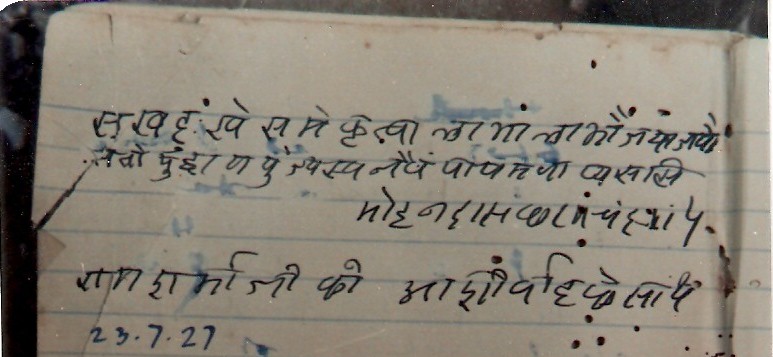 सुखदुःखे समे कृत्वा लाभालाभौ जयाजयौ
ततो युद्धाय युज्यस्व नैवं पापमवाप्स्यसि
मोहनदास
रामशर्माजी को आशीर्वाद के साथ
23.7.27